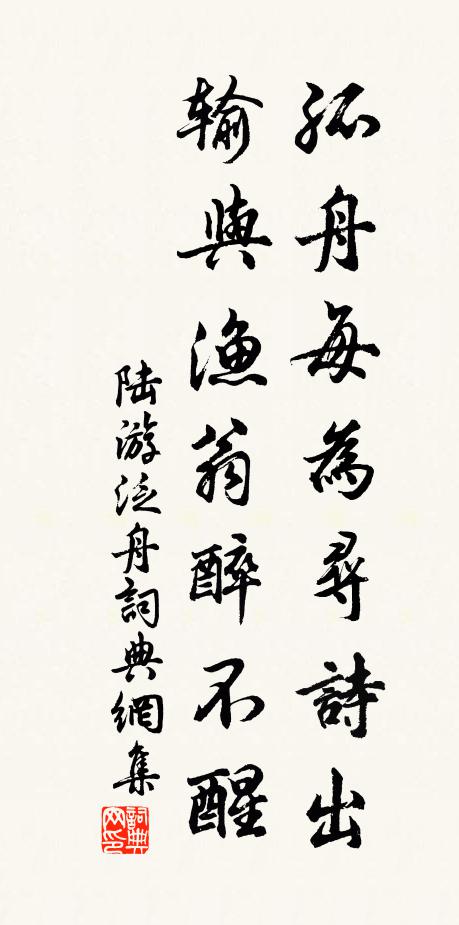 孤舟每為尋詩出
輸與漁翁醉不醒
陸游泛舟詞典網集
詞典網印